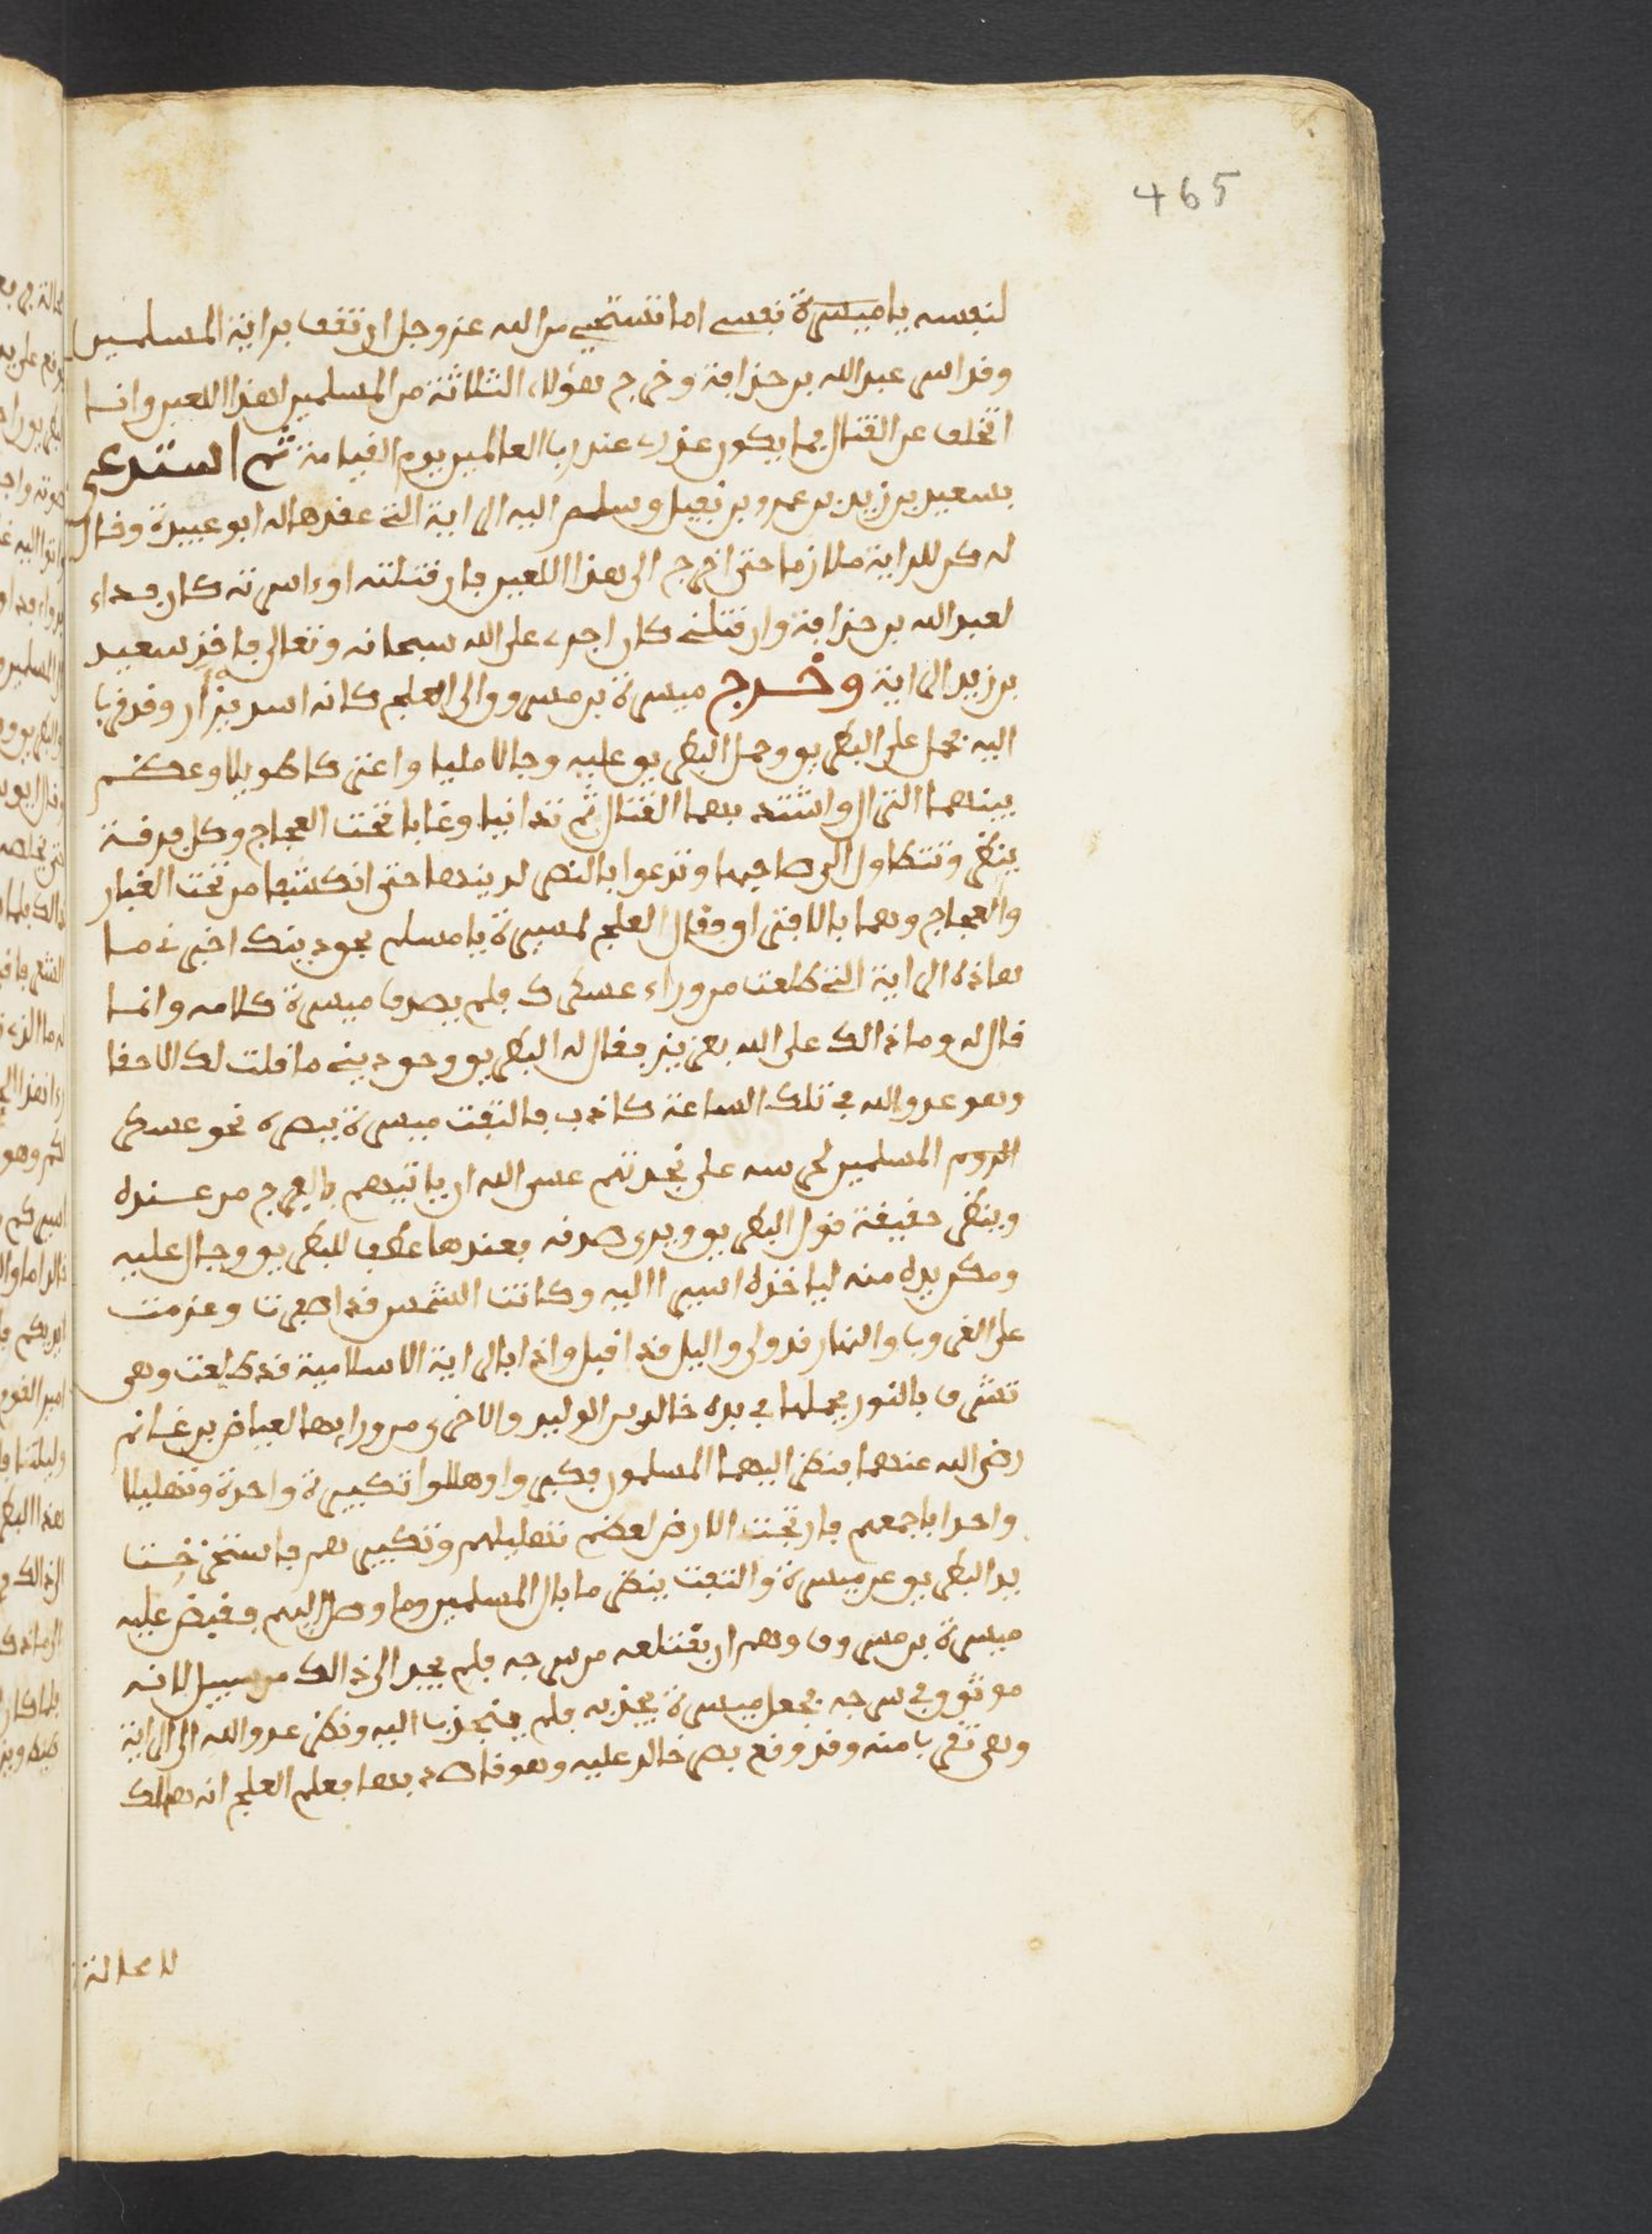 465
لنفسه يا ميسرة نفسي اما تستحيي من الله عز وجل ان تقف براية المسلمين
وقد اسر عبد الله بن حذافة وخرج هؤلاء الثلاثة من المسلمين لهذا اللعين وانا
اتخلف عن القتال فما يكون عذري عند رب العالمين يوم القيامة ثم استدعى
بسعيد بن زيد بن عمرو بن نفيل وسلم اليه الراية التي عقدها له ابو عبيدة وقال
له كن للراية ملازما حتى اخرج الى هذا اللعين فان قتلته او اسرته كان فداء
لعبد الله بن حذافة وان قتلني كان اجري على الله سبحانه وتعالى فاخذ سعيد
بن زيد الراية وخرج ميسرة بن مسروق الى العلج كانه اسد يزار وقد قرب
اليه فحمل على البطريق وحمل البطريق عليه وجالا مليا واعتركا طويلا وعظم
بينهما النزال واشتد بهما القتال ثم تدانيا وغابا تحت العجاج وكل فرقة
ينظر وتتطاول الى صاحبها وتدعوا بالنصر لدينها حتى انكشفا من تحت الغبار
والعجاج وهما بالافتراق فقال العلج لمسيرة يا مسلم بحق دينك اخبرني ما
هاذه الراية التي طلعت من وراء عسكرك فلم يصدق ميسرة كلامه وانما
قال له وما ذالك على الله بعزيز فقال له البطريق وحق ديني ما قلت لك الا حقا
وهو عدو الله في تلك الساعة كاذب فالتفت ميسرة ببصره نحو عسكر
الروم المسلمين لحرسه على نجدتهم عسى الله ان ياتيهم بالفرج من عنده
وينظر حقيقة قول البطريق ويرى صدقه فعندها عطف للبطريق وجال عليه
ومكن يده منه لياخذه اسيرا اليه وكانت الشمس قد اصفرت وعزمت
على الغروب والنهار قد ولى واليل قد اقبل واذا بالراية الاسلامية قد طلعت وهي
تشرق بالنور يحملها في يده خالد بن الوليد والاخرى من ورايها العياض بن غانم
رضي الله عنهما فنظر اليهما المسلمون فكبروا وهللوا تكبيرة واحدة وتهليلا
واحدا باجمعهم فارتجت الارض لعظم تهليلهم وتكبيرهم فاسترخت
يد البطريق عن ميسرة والتفت ينظر ما بال المسلمين وما وصل اليهم فقبض عليه
ميسرة بن مسروق وهم ان يقتلعه من سرجه فلم يجد الى ذالك من سبيل لانه
موثوق في سرجه فجعل ميسرة يجذبه فلم ينجذب اليه ونظر عدو الله الى الراية
وهي تقرب منه وقد وقع بصر خالد عليه وهو قاصد بها فعلم العلج انه هالك
لا محالة